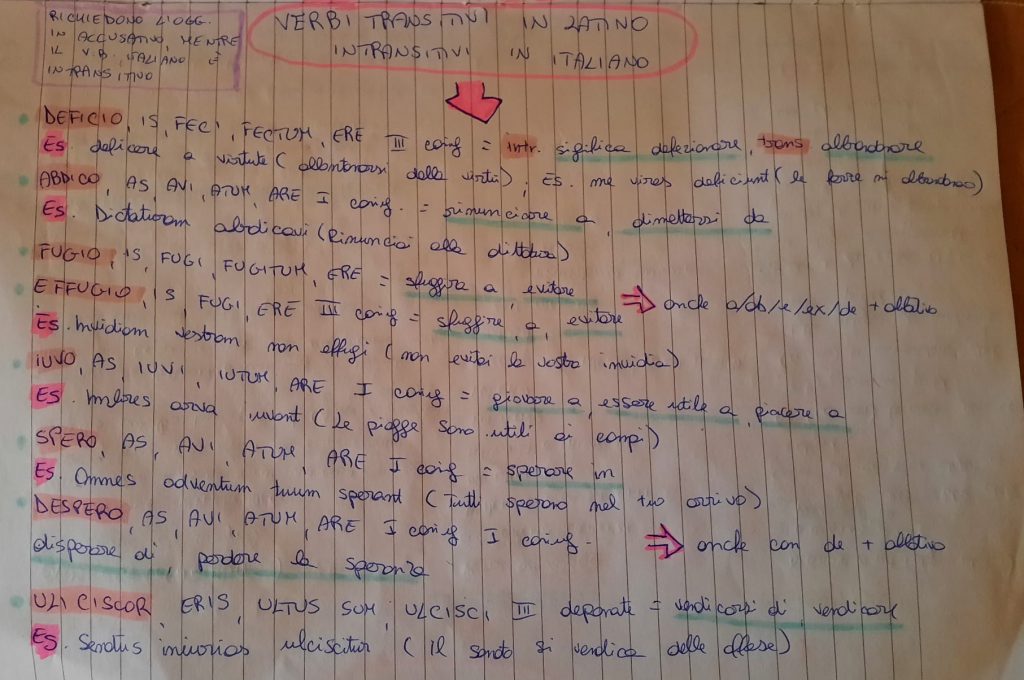 RICHIEDONO L'OGG.
IN ACCUSATIVO, MENTRE
IL V.B. ITALIANO È
INTRANSITIVO
VERBI TRANSITIVI IN LATINO
INTRANSITIVI IN ITALIANO
DEFICIO, IS, FECI, FECTUM, ERE III coniug = intr. sigifica defezionare, trans abbandonare
Es. deficere a virtute (allontanarsi dalla virtù), Es. me vires deficiunt (le forze mi abbandonano)
ABDICO, AS, AVI, ATUM, ARE I coniug. = rinunciare a, dimettersi da
Es. Dictaturam abdicavi (Rinunciai alla dittatura)
FUGIO, IS, FUGI, FUGITUM, ERE = sfuggire a, evitare
EFFUGIO, IS, FUGI, ERE III coniug = sfuggire, a, evitare ⇒ anche a/ab/e/ex/de + ablativo
Es. Invidiam vestram non effugi (non evitai la vostra invidia)
IUVO, AS, IUVI, IUTUM, ARE I coniug = giovare a, essere utile a, piacere a
Es. Imbres arva iuvant (Le piogge sono utili ai campi)
SPERO, AS, AVI, ATUM, ARE I coniug = sperare in
Es. Omnes adventum tuum sperant (Tutti sperano nel tuo arrivo)
DESPERO, AS, AVI, ATUM, ARE I coniug I coniug. ⇒ anche con de + ablativo
disperare di, perdere la speranza
ULCISCOR, ERIS, ULTUS SUM, ULCISCI, III deponente = vendicarsi di, vendicare
Es. Senatus iniurias ulciscitur (Il senato si vendica delle offese)